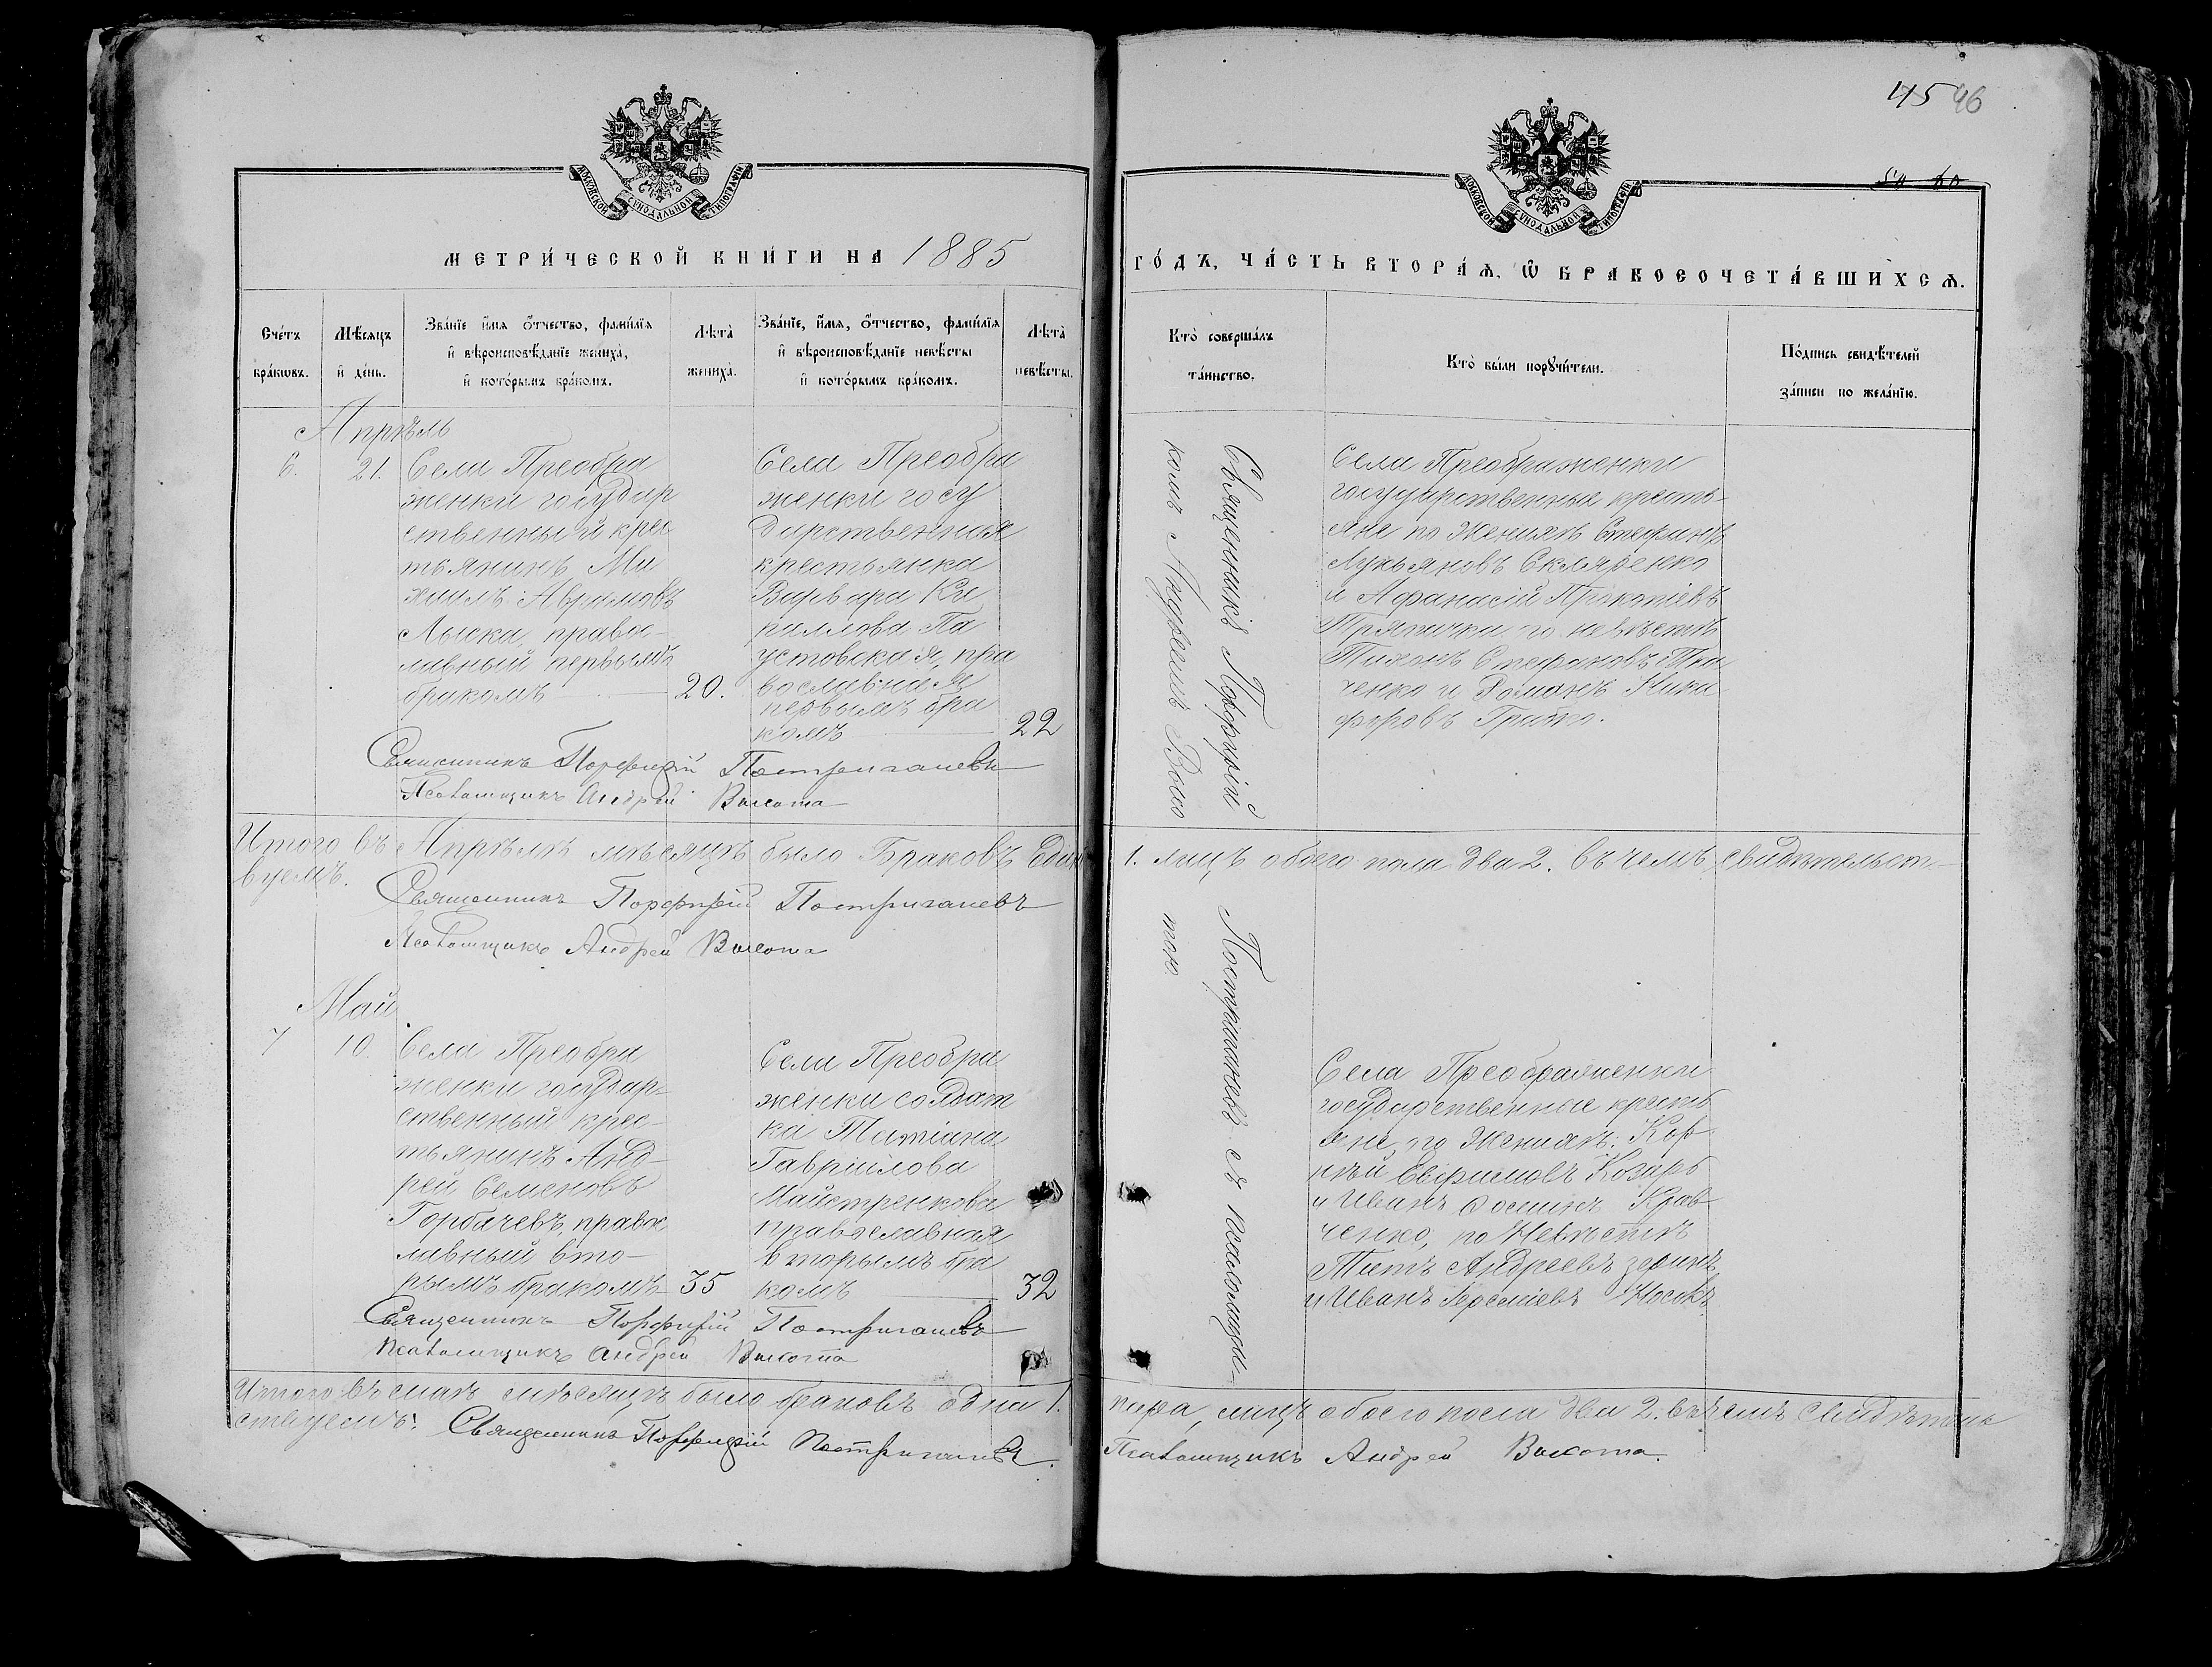 45 46
МОСКОВСКОЙ СѴНОДАЛЬНОЙ ТИПОГРАФІИ
МОСКОВСКОЙ СѴНОДАЛЬНОЙ ТИПОГРАФІИ
МЕТРИ́ЧЕСКОЙ КНИ́ГИ НА 1885
ГО́ДЪ, ЧА́СТЬ ВТОРА́Ѧ, Ѽ БРАКОСОЧЕТА́ВШИХСѦ.
Сче́тъ
бра́кѡвъ.
Мѣ́сѧцъ
и҆ де́нь.
Зва́нїе и҆́мѧ ѻ҆́тчество, фами́лїѧ
и҆ вѣроисповѣ́данїе жениха̀,
и҆ кото́рымъ бра́комъ.
Лѣ́та
жениха̀.
Зва́нїе, и҆́мѧ, ѻ҆́тчество, фами́лїѧ
и҆ вѣроисповѣ́данїе невѣ́сты
и҆ кото́рымъ бра́комъ.
Лѣ́та
невѣ́сты.
Кто̀ соверша́лъ
та́инство.
Кто̀ бы́ли порꙋчи́тели.
По́дпись свидѣ́телей
за́писи по жела́нїю.
Апрѣль
6.
21.
Села Преобра
женки государ
ственный крес
тьянинъ Ми
хаилъ Аврамовъ
Лыска, правос-
лавный первымъ
бракомъ
20.
Села Преобра
женки госу
дарственная
крестьянка
Варвара Ки
риллова Па
устовская, пра
вославная
первымъ бра
комъ
22
Священникъ Порфирій
комъ Андреемъ Высо
Села Преображенки
государственные кресть-
яне по Женихѣ Стефанъ
Лукьяновъ Скляренко
и Афанасій Прокопіевъ
Тряпичка, по невѣстѣ
Тихонъ Стефановъ Тка
ченко и Романъ Ники
форовъ Грибто.
Священникъ Порфирій Постригачевъ
Псаломщикъ Андрей Высота
Итого въ Апрѣлѣ мѣсяцѣ было Браковъ Един
1. лицъ обоего пола два 2. въ чемъ свидѣтельст-
вуемъ.
Священникъ Порфирій Постригачевъ
Псаломщикъ Андрей Высота
Постригачевъ съ псаломщи-
тою.
Май
7
10.
Села Преобра
женки государ-
ственный крес-
тьянинъ Анд-
рей Семеновъ
Горбачевъ, правос
лавный вто-
рымъ бракомъ
35
Села Преобра
женки солдат
ка Татіана
Гавріилова
Майстренкова
православная
вторымъ бра
комъ
32
Села Преображенки
государственные кресть
яне, по Женихѣ: Кор
нѣй Евфимовъ Козарь
и Иванъ Крав
ченко, по Невѣстѣ
Титъ Андреевъ
и Иванъ Іереміевъ Носокъ
Священникъ Порфирій Постригачевъ
Псаломщикъ Андрей Высота
Итого въ маѣ мѣсяцѣ было браковъ одна 1.
пара, лицъ обоего пола два 2. въ чемъ свидѣтель
ствуемъ. Священникъ Порфирій Постригачевъ.
Псаломщикъ Андрей Высота.